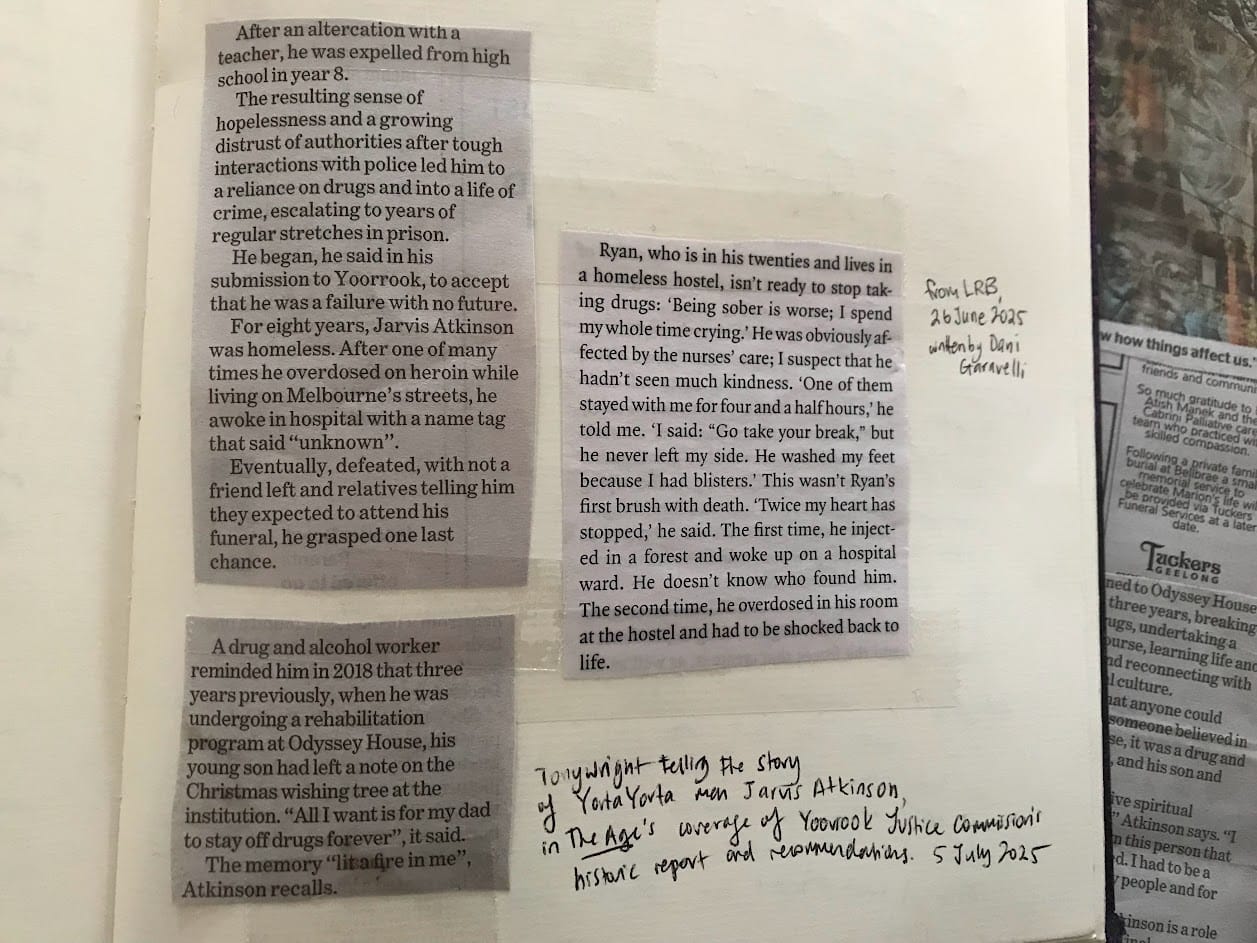 After an altercation with a
teacher, he was expelled from high
school in year 8.
The resulting sense of
hopelessness and a growing
distrust of authorities after tough
interactions with police led him to
a reliance on drugs and into a life of
crime, escalating to years of
regular stretches in prison.
He began, he said in his
submission to Yoorrook, to accept
that he was a failure with no future.
For eight years, Jarvis Atkinson
was homeless. After one of many
times he overdosed on heroin while
living on Melbourne's streets, he
awoke in hospital with a name tag
that said “unknown”.
Eventually, defeated, with not a
friend left and relatives telling him
they expected to attend his
funeral, he grasped one last
chance.
A drug and alcohol worker
reminded him in 2018 that three
years previously, when he was
undergoing a rehabilitation
program at Odyssey House, his
young son had left a note on the
Christmas wishing tree at the
institution. “All I want is for my dad
to stay off drugs forever”, it said.
The memory “lit a fire in me”,
Atkinson recalls.
Ryan, who is in his twenties and lives in
a homeless hostel, isn't ready to stop tak-
ing drugs: ‘Being sober is worse; I spend
my whole time crying.’ He was obviously af-
fected by the nurses' care; I suspect that he
hadn't seen much kindness. ‘One of them
stayed with me for four and a half hours,’ he
told me. ‘I said: “Go take your break,” but
he never left my side. He washed my feet
because I had blisters.’ This wasn't Ryan's
first brush with death. ‘Twice my heart has
stopped,’ he said. The first time, he inject-
ed in a forest and woke up on a hospital
ward. He doesn't know who found him.
The second time, he overdosed in his room
at the hostel and had to be shocked back to
life.
from LRB,
26 June 2025
written by Dani
Garavelli
Tony Wright telling the story
of Yorta Yorta man Jarvis Atkinson,
in The Age's coverage of Yoorrook Justice Commission's
historic report and recommendations. 5 July 2025
w how things affect us.’
friends and communi
So much gratitude to
Atish Manek and the
Cabrini Palliative care
team who practiced wi
skilled compassion.
Following a private famil
burial at Bellbrae a smal
memorial service to
celebrate Marion's life wil
be provided via Tuckers
Funeral Services at a later
date.
Tuckers
GEELONG
ned to Odyssey House
three years, breaking
ugs, undertaking a
ourse, learning life and
nd reconnecting with
l culture.
hat anyone could
someone believed in
se, it was a drug and
, and his son and
ive spiritual
” Atkinson says. “I
n this person that
ed. I had to be a
people and for
kinson is a role